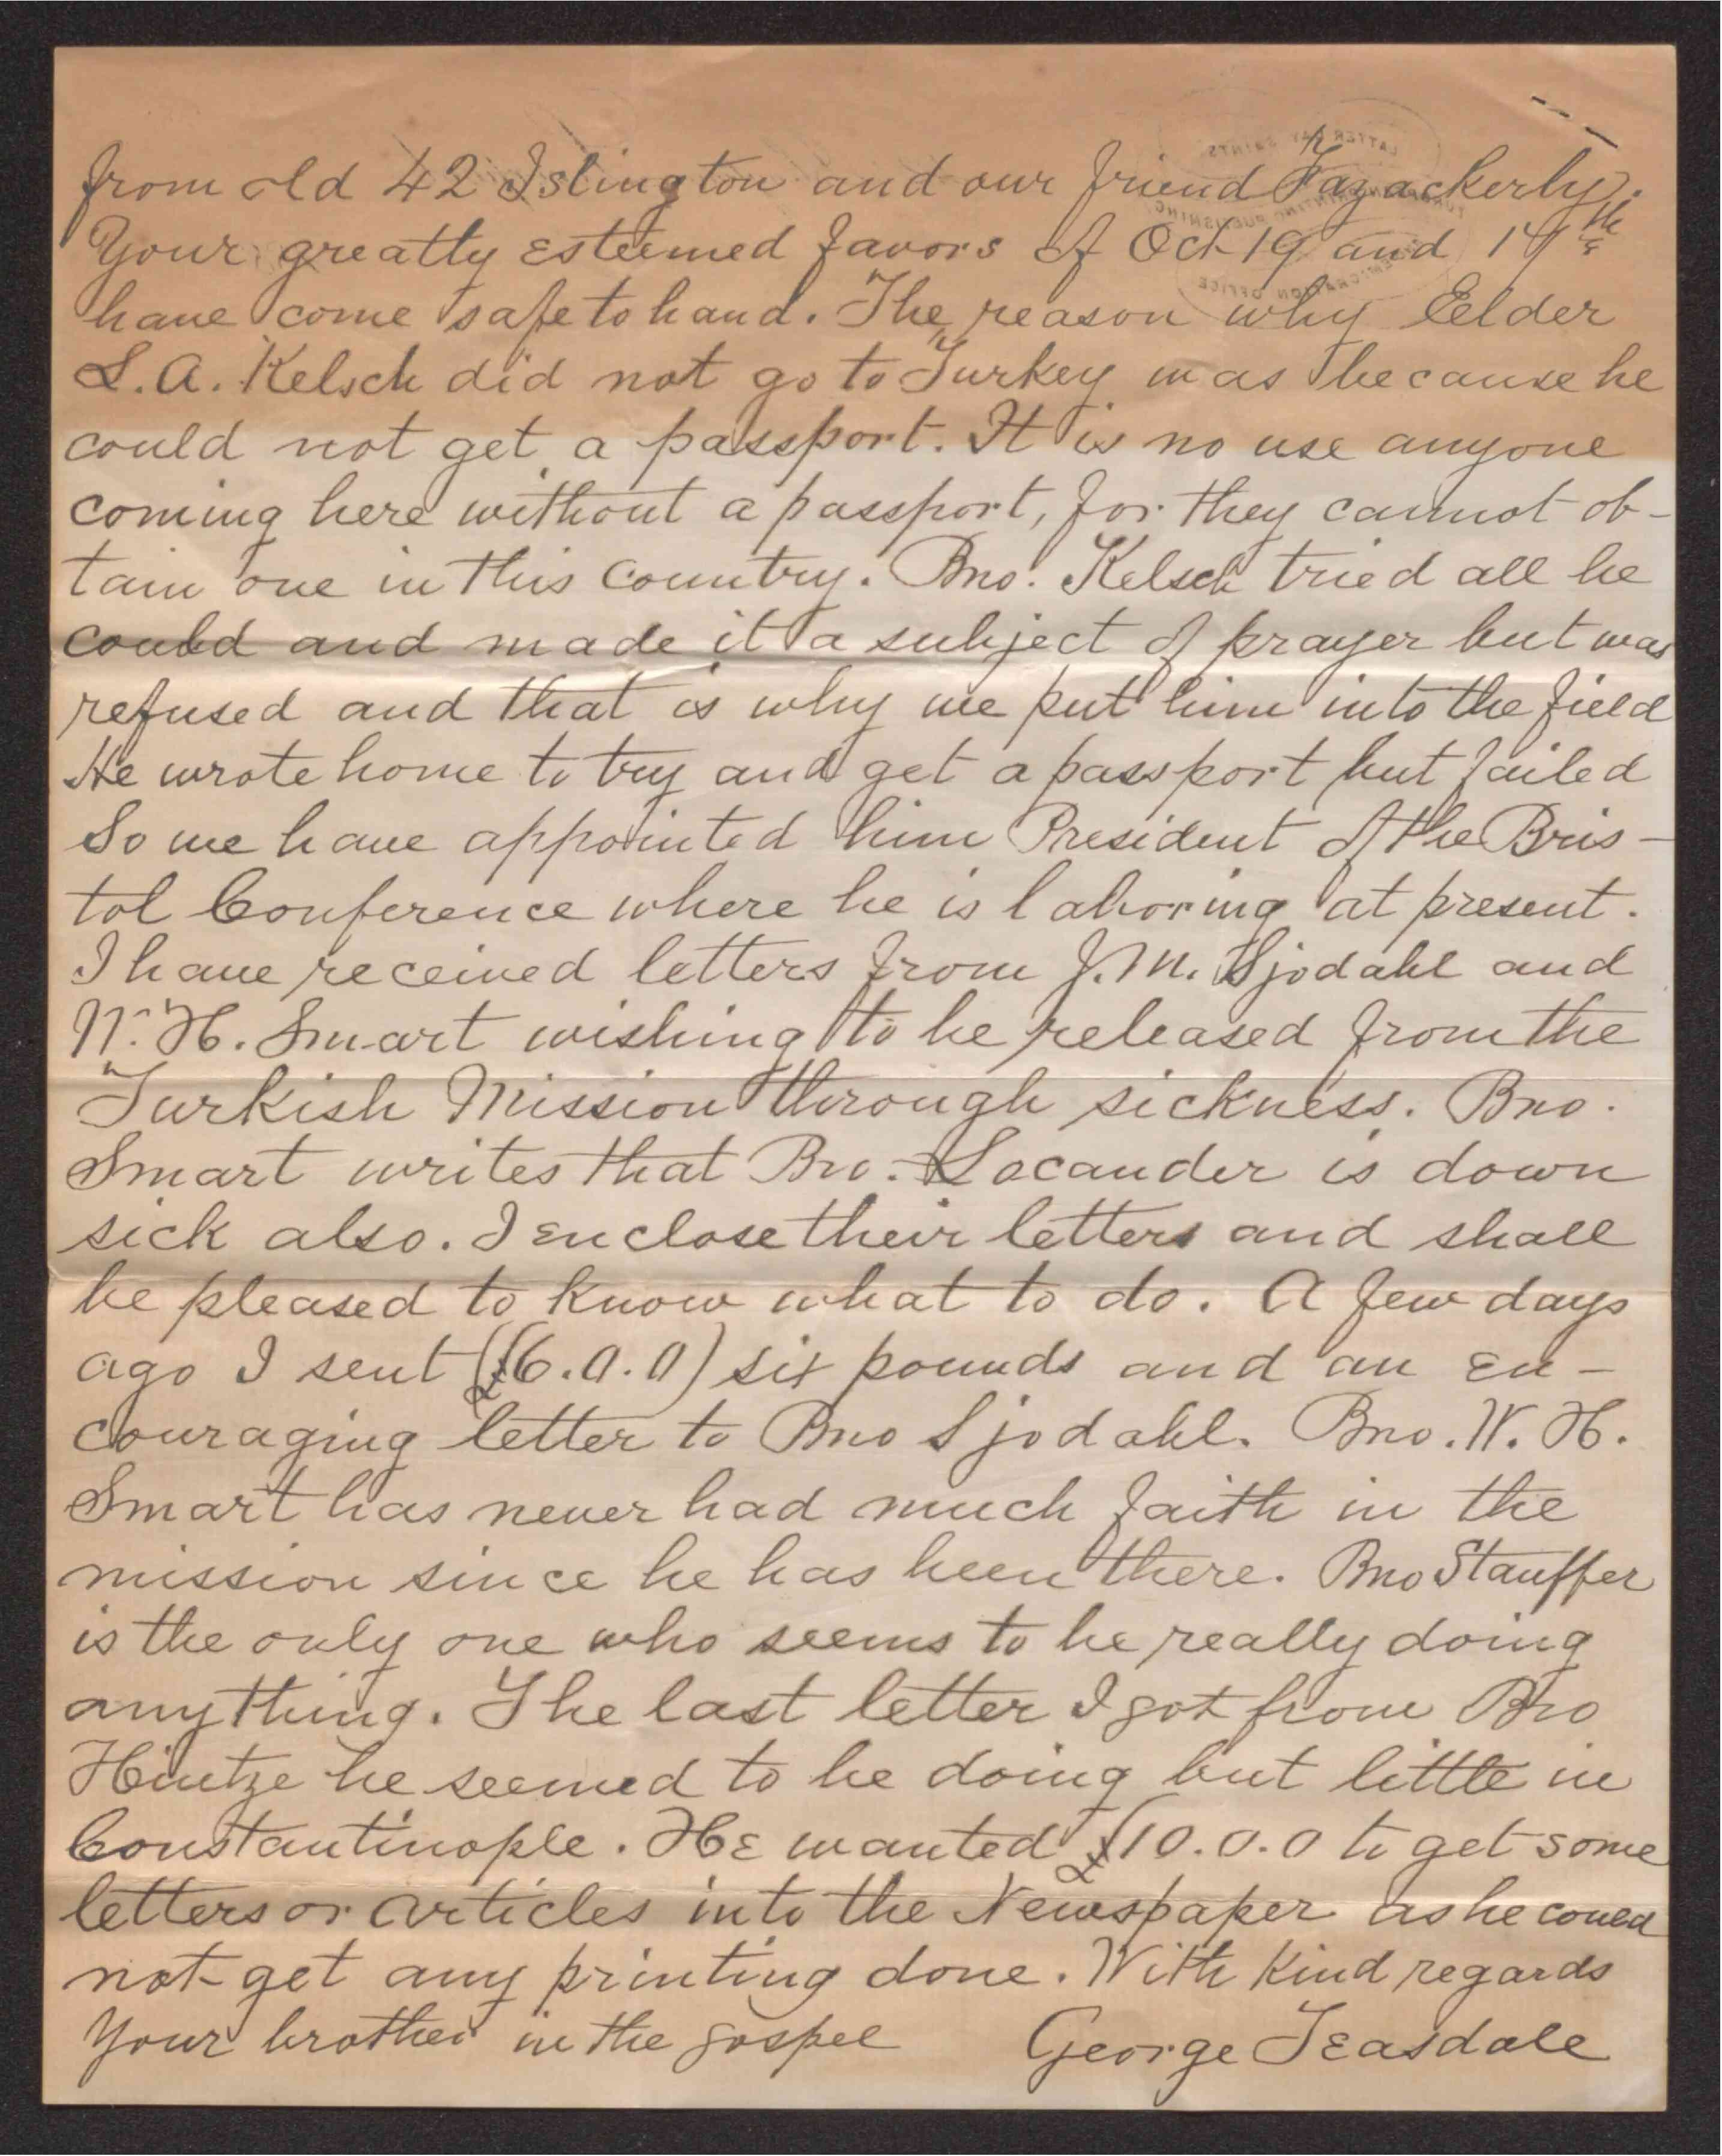 from old 42 Islington and our friend Fazackerly.
Your greatly esteemed favors of Oct 19 and 14th
have come safe to hand. The reason why Eelder
L. A. Kelsch did not go to Turkey was because he
could not get a passport. It is no use anyone
coming here without a passport, for they cannot ob-
tain one in this Country. Bro. Kelsch tried all he
could and made it a subject of prayer but was
refused and that is why we put him into the field
He wrote home to try and get a passport but failed
So we have appointed him President of the Bris-
tol Conference where he is laboring at present.
I have received letters from J. M. Sjodahl and
W. H. Smart wishing to be released from the
Turkish Mission through sickness. Bro.
Smart writes that Bro. Locander is down
sick also. I enclose their letters and shall
be pleased to know what to do. A few days
ago I sent (£6.0.0) six pounds and an en-
couraging letter to Bro Sjodahl. Bro. W. H.
Smart has never had much faith in the
mission since he has been there. Bro Stauffer
is the only one who seems to be really doing
anything. The last letter I got from Bro
Hintze he seemed to be doing but little in
Constantinople. He wanted £10.0.0 to get some
letters or articles into the Newspaper as he could
not get any printing done. With kind regards
Your brother in the gospel George Teasdale